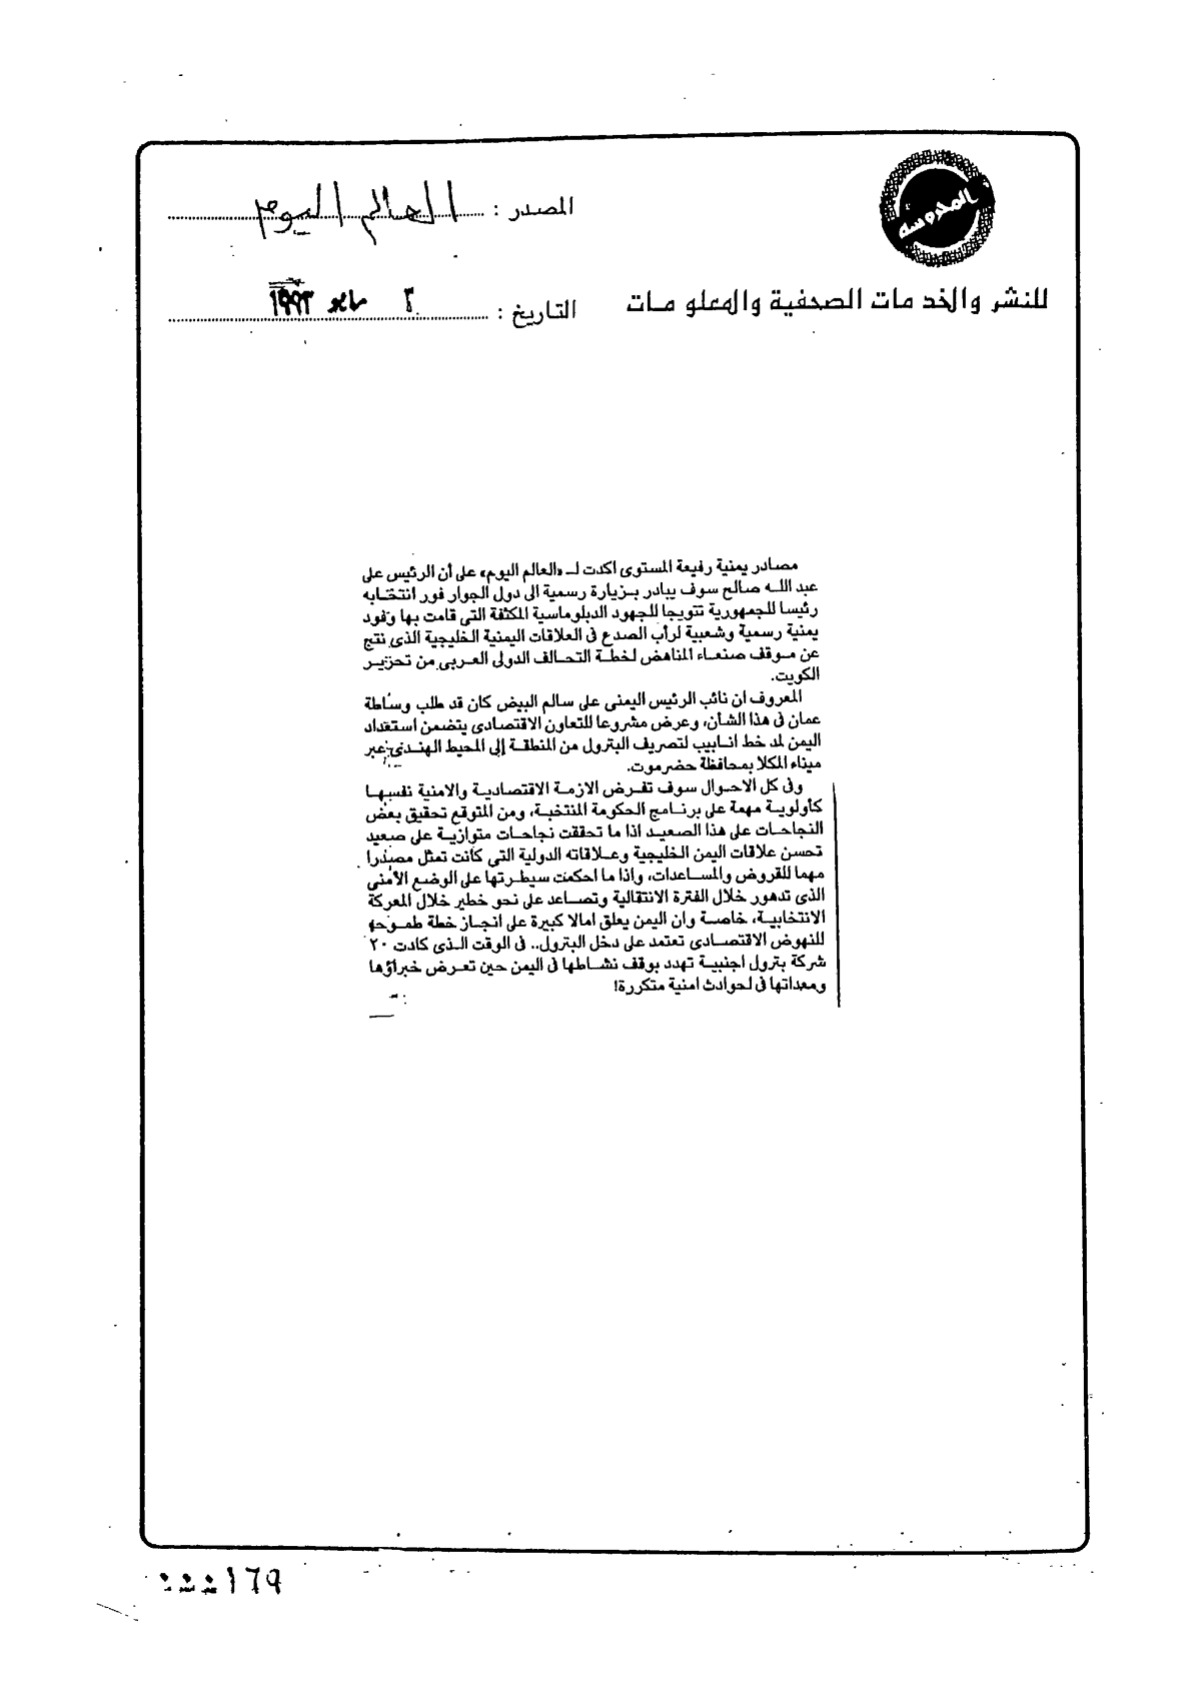 المحروسة
المصدر : العالم اليوم
للنشر والخدمات الصحفية والمعلومات
التاريخ : ٣ مايو ١٩٩٣
مصادر يمنية رفيعة المستوى اكدت لـ «العالم اليوم» على أن الرئيس على
عبد الله صالح سوف يبادر بزيارة رسمية الى دول الجوار فور انتخابه
رئيسا للجمهورية تتويجا للجهود الدبلوماسية المكثفة التى قامت بها وفود
يمنية رسمية وشعبية لرأب الصدع فى العلاقات اليمنية الخليجية الذى نتج
عن موقف صنعاء المناهض لخطة التحالف الدولى العربى من تحرير
الكويت.
المعروف ان نائب الرئيس اليمنى على سالم البيض كان قد طلب وساطة
عمان فى هذا الشأن، وعرض مشروعا للتعاون الاقتصادى يتضمن استعداد
اليمن لمد خط انابيب لتصريف البترول من المنطقة إلى المحيط الهندى عبر
ميناء المكلا بمحافظة حضرموت.
وفى كل الاحوال سوف تفرض الازمة الاقتصادية والامنية نفسها
كأولوية مهمة على برنامج الحكومة المنتخبة، ومن المتوقع تحقيق بعض
النجاحات على هذا الصعيد اذا ما تحققت نجاحات متوازية على صعيد
تحسن علاقات اليمن الخليجية وعلاقاته الدولية التى كانت تمثل مصدرا
مهما للقروض والمساعدات، واذا ما احكمت سيطرتها على الوضع الأمنى
الذى تدهور خلال الفترة الانتقالية وتصاعد على نحو خطير خلال المعركة
الانتخابية، خاصة وان اليمن يعلق امالا كبيرة على انجاز خطة طموحة
للنهوض الاقتصادى تعتمد على دخل البترول.. فى الوقت الذى كادت ٢٠
شركة بترول اجنبية تهدد بوقف نشاطها فى اليمن حين تعرض خبراؤها
ومعداتها فى لحوادث امنية متكررة!
١٦٩